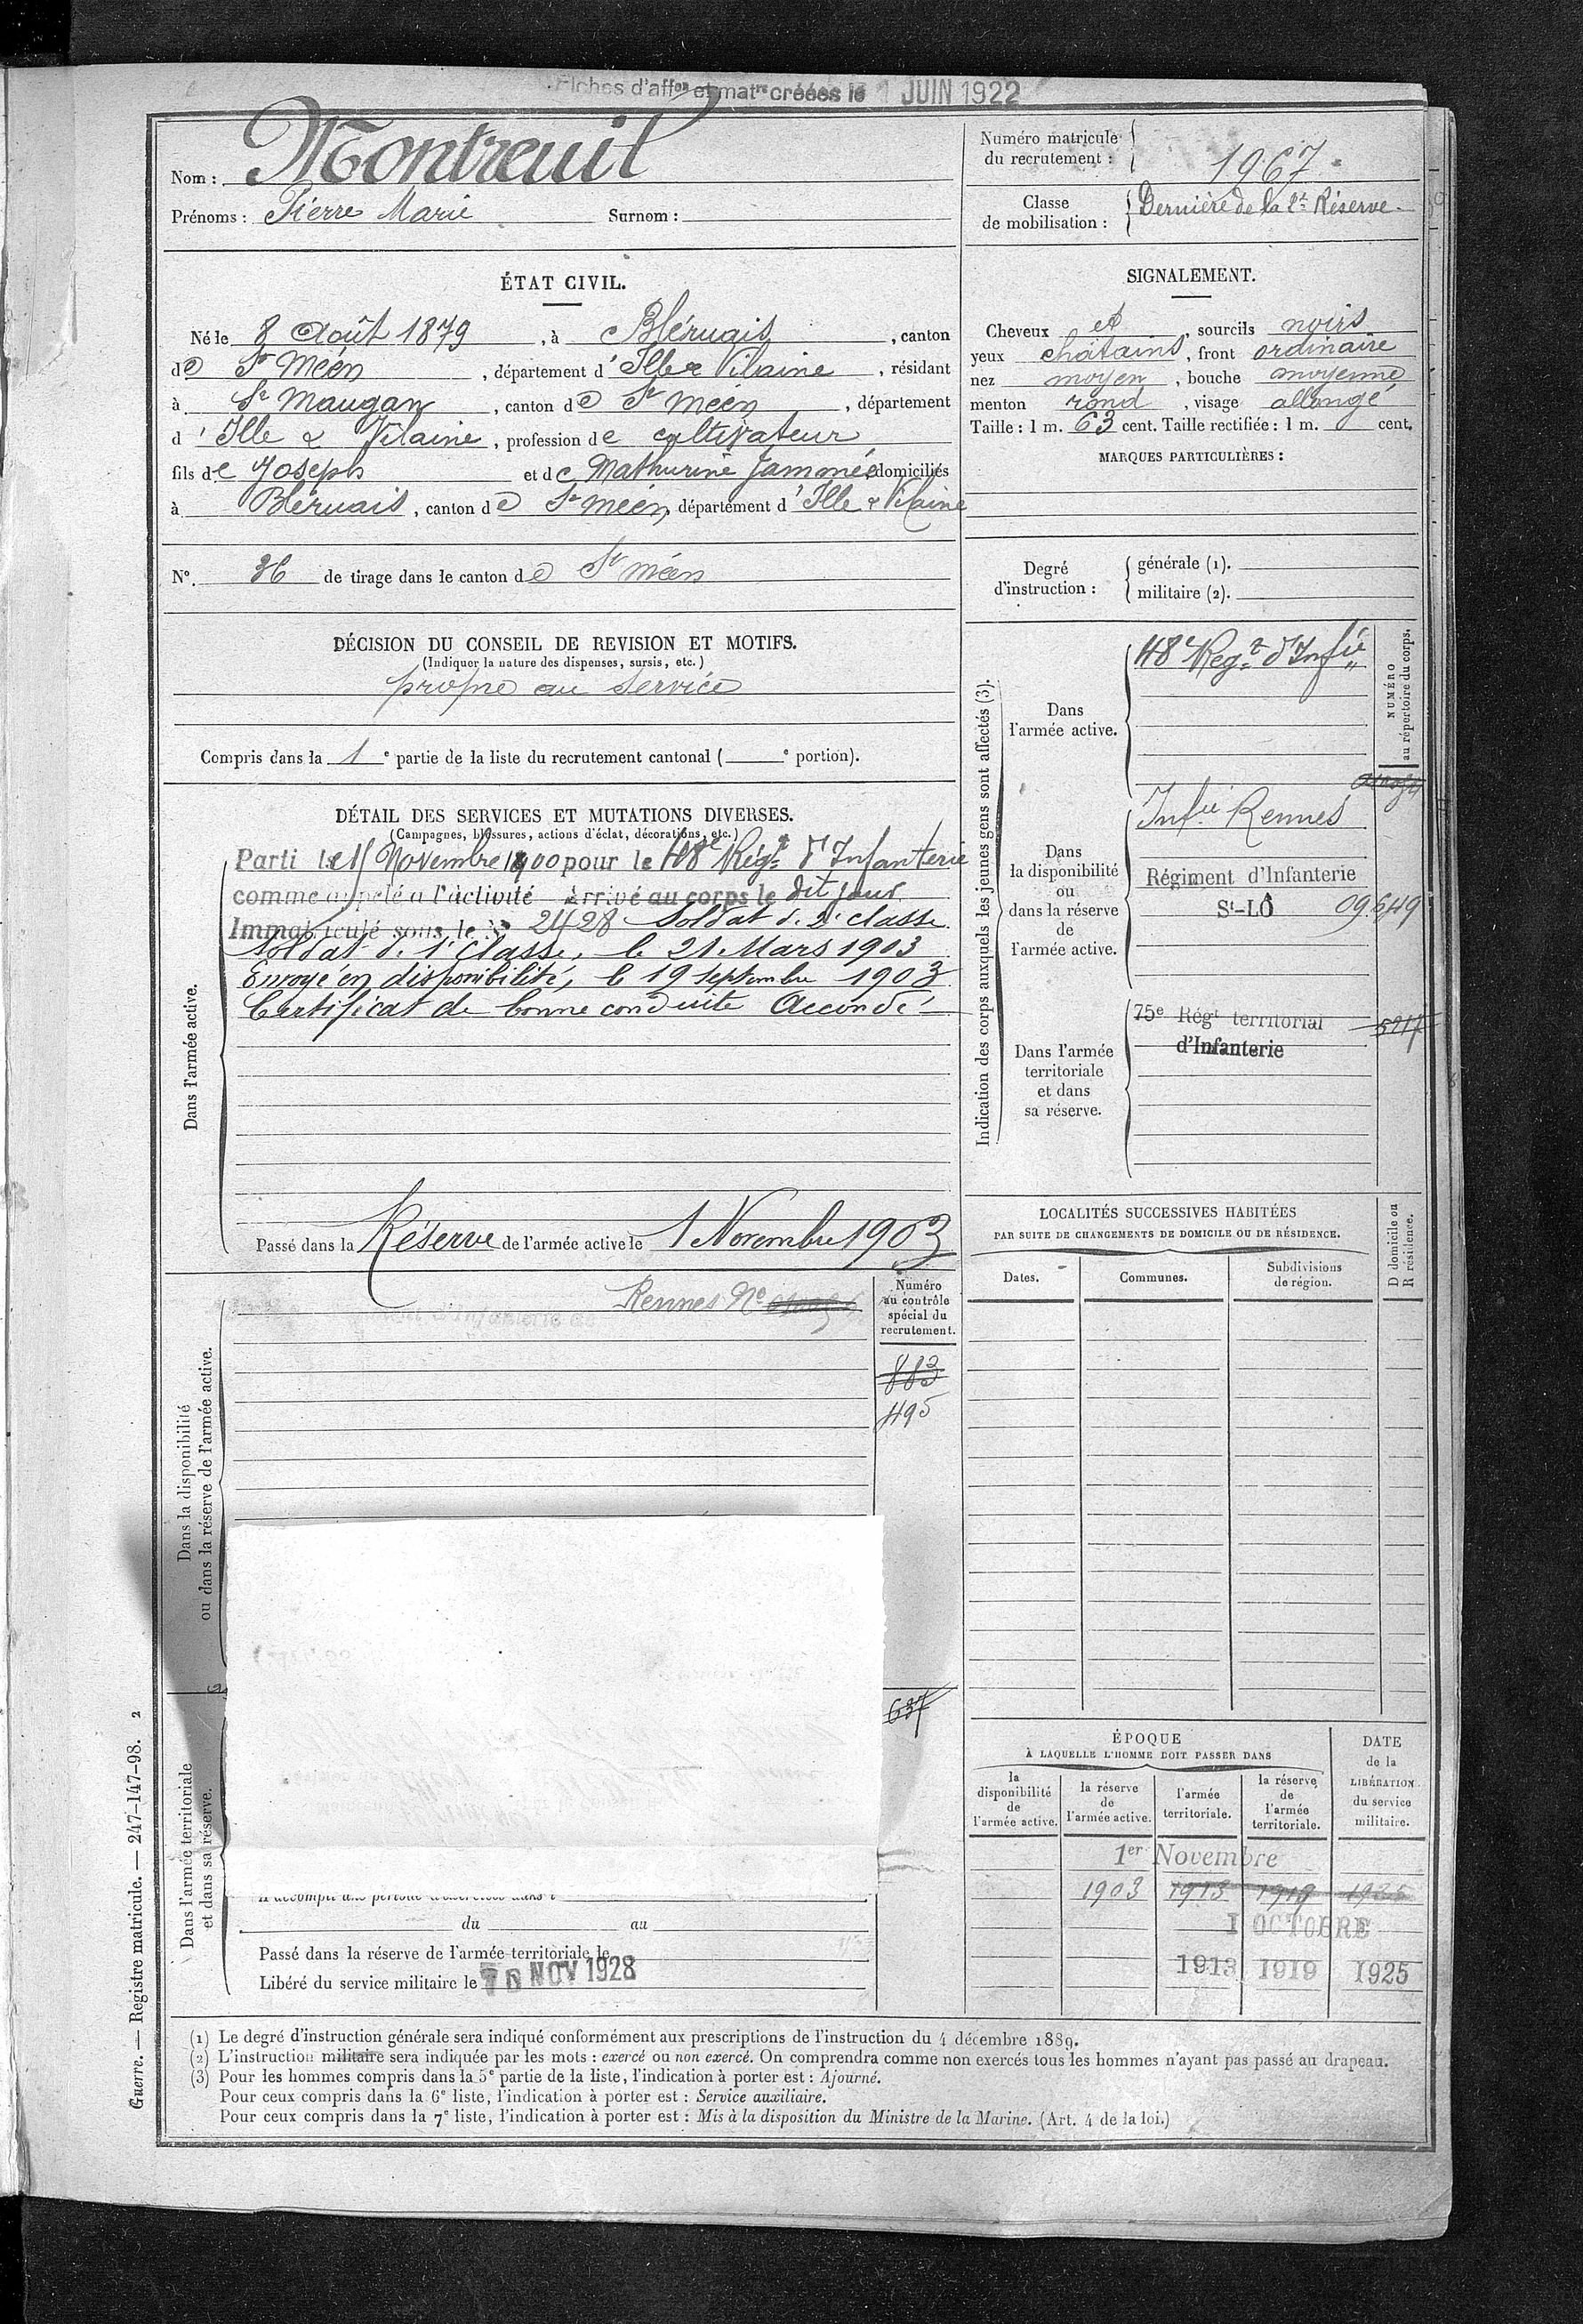 Fiches d'affon et matre créées le 1 JUIN 1922
Nom : Montreuil
Prénoms : Pierre Marie Surnom :
Numéro matricule du recrutement : 1967
Classe de mobilisation : Dernière de la 2e Réserve
ÉTAT CIVIL.
Né le 8 Août 1879, à Bléruais, canton
de St Méen, département d'Ille & Vilaine, résidant
à St Maugan, canton de St Méen, département
d'Ille & Vilaine, profession de cultivateur
fils de Joseph et de Mathurine Jammée domiciliés
à Bléruais, canton de St Méen, département d'Ille & Vilaine
N°. 36 de tirage dans le canton de St Méen
SIGNALEMENT.
Cheveux et, sourcils noirs
yeux châtains, front ordinaire
nez moyen, bouche moyenne
menton rond, visage allongé
Taille : 1 m. 63 cent. Taille rectifiée : 1 m. cent.
MARQUES PARTICULIÈRES :
Degré d'instruction : générale (1).
militaire (2).
DÉCISION DU CONSEIL DE REVISION ET MOTIFS.
(Indiquer la nature des dispenses, sursis, etc.)
propre au service
Compris dans la 1e partie de la liste du recrutement cantonal ( e portion).
DÉTAIL DES SERVICES ET MUTATIONS DIVERSES.
(Campagnes, blessures, actions d'éclat, décorations, etc.)
Dans l'armée active.
Parti le 15 Novembre 1900 pour le 48e Régt d'Infanterie
comme appelé à l'activité Arrivé au corps le dit jour
Immatriculé sous le No 2428 Soldat de 2e classe
Soldat de 1e Classe, le 21 Mars 1903
Envoyé en disponibilité, le 19 septembre 1903
Certificat de bonne conduite Accordé
Passé dans la Réserve de l'armée active le 1 Novembre 1903
Dans la disponibilité
ou dans la réserve de l'armée active.
Rennes No
Numéro
au contrôle
spécial du
recrutement.
883
495
637
Dans l'armée territoriale
et dans sa réserve.
du au
Passé dans la réserve de l'armée territoriale le
Libéré du service militaire le NOV 1928
Indication des corps auxquels les jeunes gens sont affectés (3).
NUMÉRO
au répertoire du corps.
Dans
l'armée active.
48e Regt d'Infie
Dans
la disponibilité
ou
dans la réserve
de
l'armée active.
Infie Rennes
Régiment d'Infanterie
St-LÔ 09.649
Dans l'armée
territoriale
et dans
sa réserve.
75e Régt territorial 5217
d'Infanterie
LOCALITÉS SUCCESSIVES HABITÉES
PAR SUITE DE CHANGEMENTS DE DOMICILE OU DE RÉSIDENCE.
Dates. Communes. Subdivisions de région. D domicile ou R résidence.
ÉPOQUE
À LAQUELLE L'HOMME DOIT PASSER DANS
DATE de la LIBÉRATION du service militaire.
la disponibilité de l'armée active. la réserve de l'armée active. l'armée territoriale. la réserve de l'armée territoriale.
1er Novembre
1903 1913 1919 1925
1 OCTOBRE
1913 1919 1925
(1) Le degré d'instruction générale sera indiqué conformément aux prescriptions de l'instruction du 4 décembre 1889.
(2) L'instruction militaire sera indiquée par les mots : exercé ou non exercé. On comprendra comme non exercés tous les hommes n'ayant pas passé au drapeau.
(3) Pour les hommes compris dans la 5e partie de la liste, l'indication à porter est : Ajourné.
Pour ceux compris dans la 6e liste, l'indication à porter est : Service auxiliaire.
Pour ceux compris dans la 7e liste, l'indication à porter est : Mis à la disposition du Ministre de la Marine. (Art. 4 de la loi.)
Guerre. — Registre matricule. — 247-147-98. 2